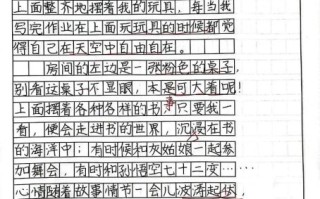 上面整齐地摆着我的玩具，每当我
写完作业在上面玩玩具的时候都觉
得自己在天空中自由自在。
房间的左边是一张粉色的桌子，
别看这桌子不显眼，本事可大着呢！
上面摆着各种各样的书，只要我一
看，便会走进书的世界，沉浸在书
的海洋中；有时候和灰姑娘一起参
加舞会，有时和孙悟空七十二变……
心情随着故事情节一会儿波涛起伏，